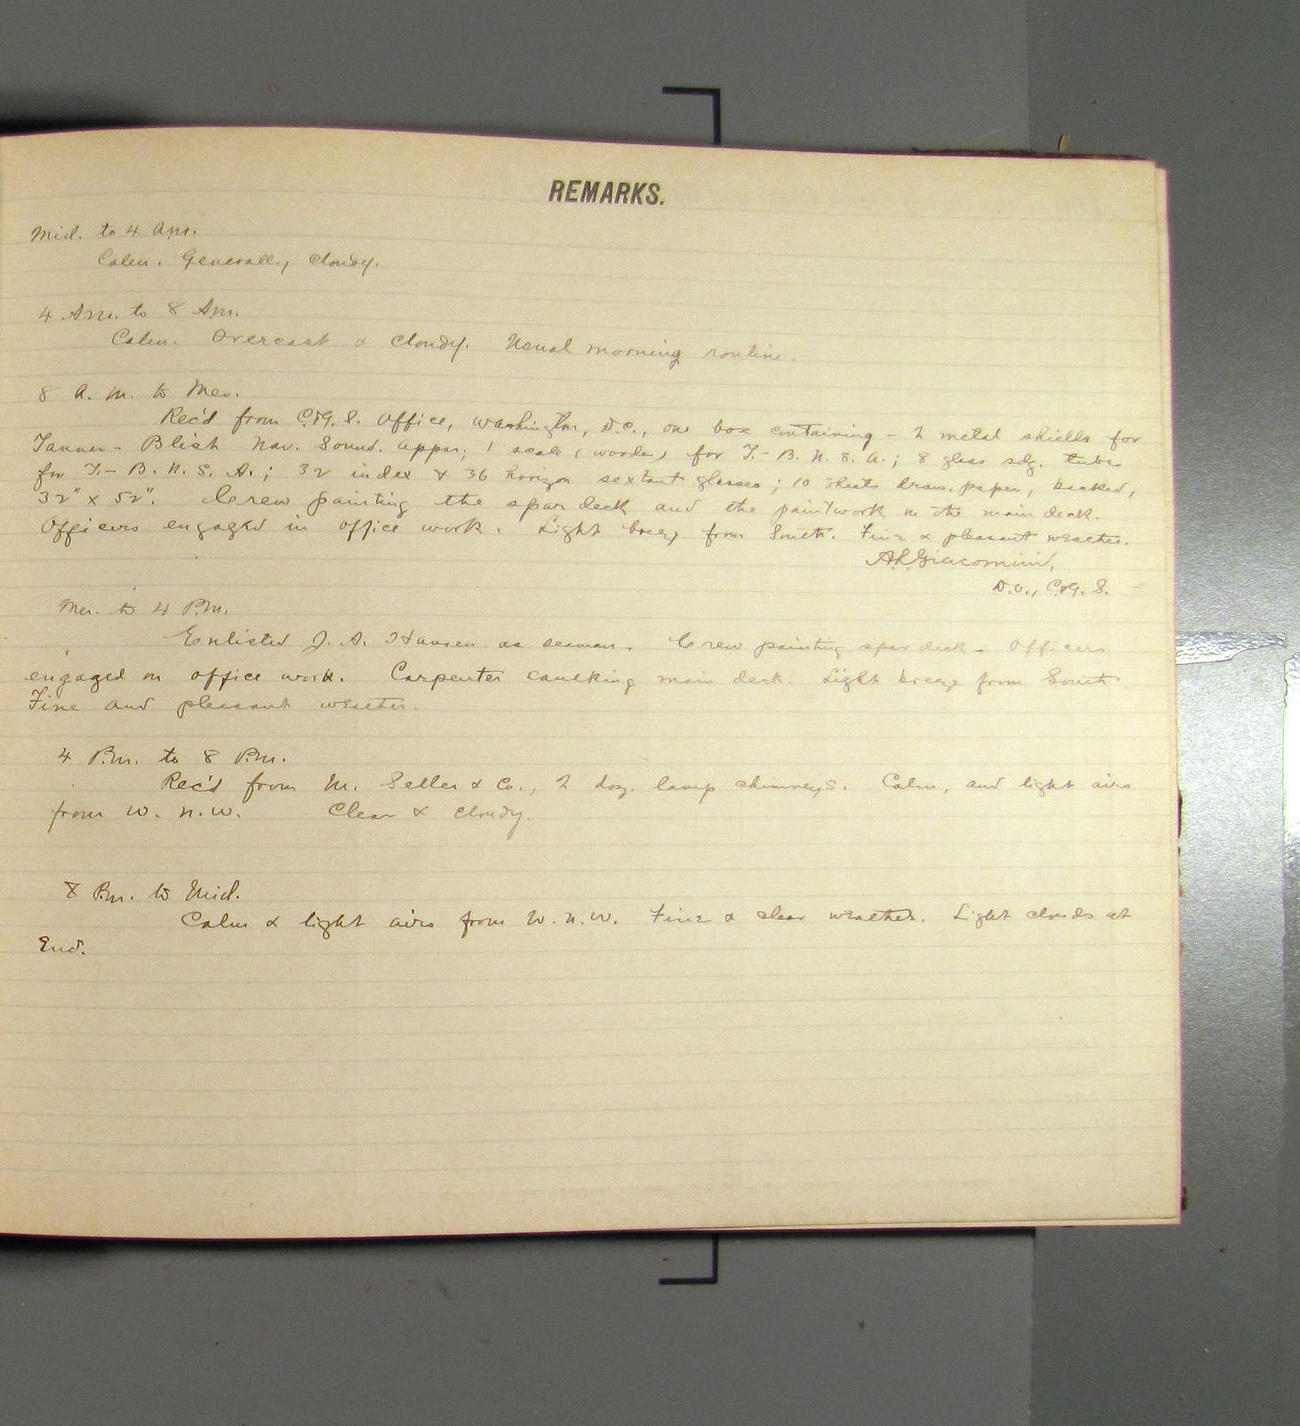 REMARKS.
Mid. to 4 A.M.
Calm. Generally cloudy.
4 A.M. to 8 A.M.
Calm. Overcast & cloudy. Usual morning routine.
8 A. M. to Mer.
Rec'd from C.&G. S. Office, Washington, D.C., one box containing - 2 metal shields for
Tanner - Blish Nav. Sound. appar; 1 scale (wooden) for T. - B. N. S. A.; 8 glass sdg. tubes
for T. - B. N. S. A.; 32 index & 36 horizon sextant glasses; 10 sheets draw. paper, backed,
32" x 52". Crew painting the spar deck and the paintwork on the main deck.
Officers engaged in office work. Light breeze from South. Fine & pleasant weather.
Giacomini,
D.O., C.&G. S.
Mer. to 4 P.M.
Enlisted J. A. Hansen as seaman. Crew painting spar deck. Officers
engaged on office work. Carpenter caulking main deck. Light breeze from South
Fine and pleasant weather.
4 P.M. to 8 P.M.
Rec'd from M. Seller & Co., 2 doz. lamp chimneys. Calm, and light airs
from W. N. W. Clear & cloudy.
8 P.M. to Mid.
Calm & light airs from W. N. W. Fine & clear weather. Light clouds at
End.